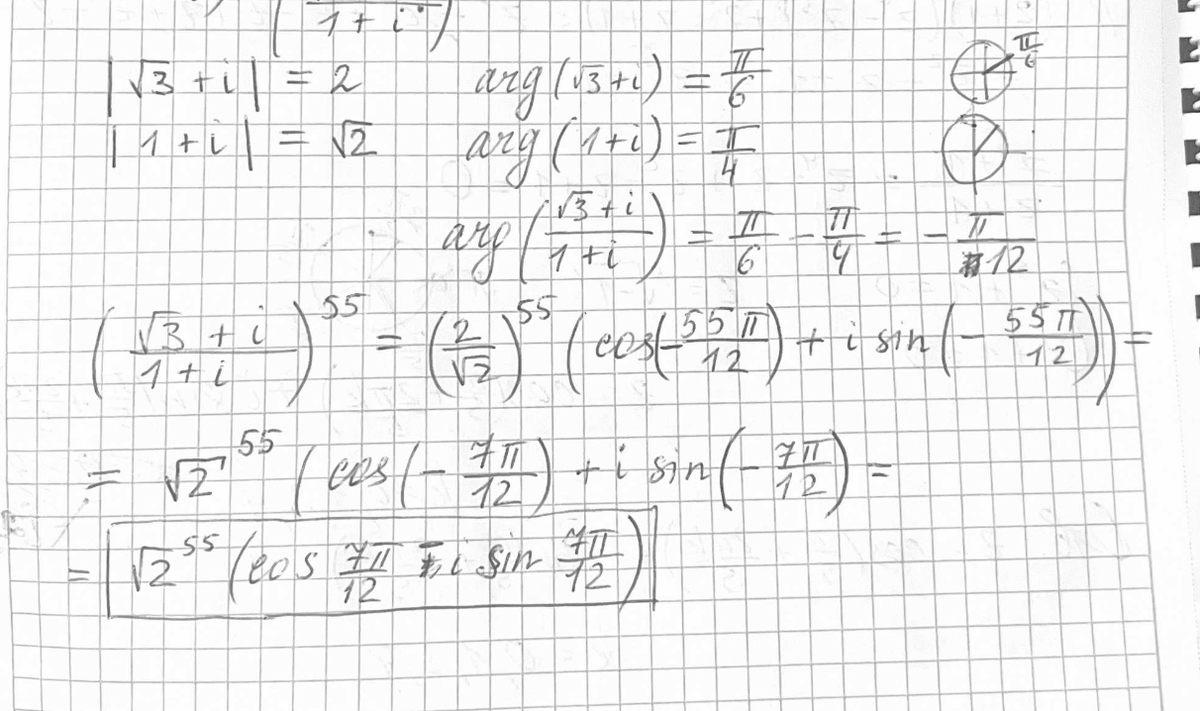 ( / (1 + i) )
|√3 + i| = 2 arg(√3+i) = π/6 π/6
|1 + i| = √2 arg(1+i) = π/4
arg((√3 + i)/(1 + i)) = π/6 − π/4 = − π/12
((√3 + i)/(1 + i))^55 = (2/√2)^55 (cos(−55π/12) + i sin(− 55π/12)) =
= √2^55 (cos(− 7π/12) + i sin(− 7π/12) =
= √2^55 (cos 7π/12 − i sin 7π/12)